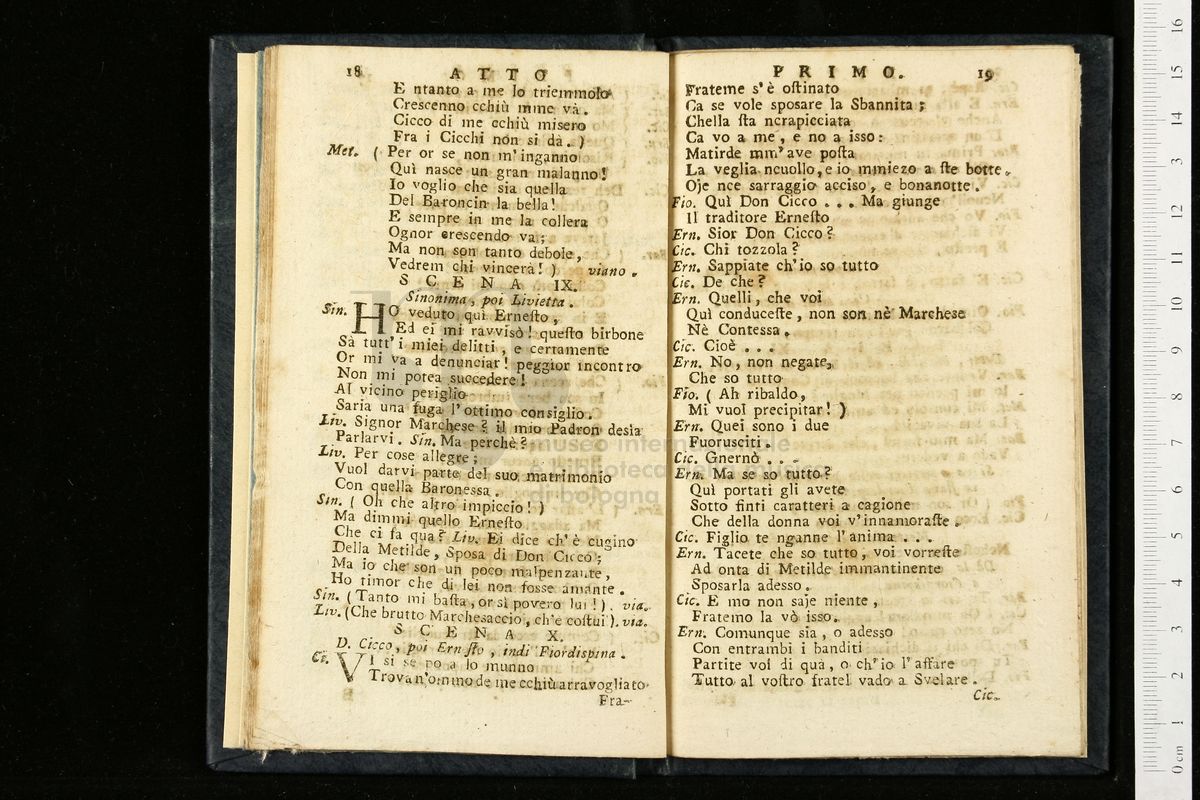 18 ATTO
E ntanto a me lo triemmolo
Crescenno cchiù mme và.
Cicco di me cchiù misero
Fra i Cicchi non si da. )
Met. ( Per or se non m'inganno
Quì nasce un gran malanno!
Io voglio che sia quella
Del Baroncin la bella!
E sempre in me la collera
Ognor crescendo va;
Ma non son tanto debole,
Vedrem chi vincerà! ) viano.
SCENA IX.
Sinonima, poi Livietta.
Sin. HO veduto quì Erneſto,
Ed ei mi ravvisò! queſto birbone
Sà tutt'i miei delitti, e certamente
Or mi va a denunciar! peggior incontro
Non mi potea succedere!
Al vicino periglio
Saria una fuga l'ottimo consiglio.
Liv. Signor Marchese? il mio Padron desia
Parlarvi. Sin. Ma perchè?
Liv. Per cose allegre;
Vuol darvi parte del suo matrimonio
Con quella Baronessa.
Sin. ( Oh che altro impiccio! )
Ma dimmi quello Erneſto
Che ci fa qua? Liv. Ei dice ch'è cugino
Della Metilde, Sposa di Don Cicco;
Ma io che son un poco malpenzante,
Ho timor che di lei non fosse amante.
Sin. ( Tanto mi baſta, or sì povero lui! ). via.
Liv. (Che brutto Marchesaccio, ch'è coſtui). via.
SCENA X.
D. Cicco, poi Erneſto, indi Fiordispina.
Ci. VI si se po a lo munno
Trova n'ommo de me cchiù arravogliato
Fra-
PRIMO. 19
Frateme s'è oſtinato
Ca se vole sposare la Sbannita;
Chella ſta ncrapicciata
Ca vo a me, e no a isso:
Matirde mm'ave poſta
La veglia ncuollo, e io mmiezo a ſte botte,
Oje nce sarraggio acciso, e bonanotte.
Fio. Quì Don Cicco . . . Ma giunge
Il traditore Erneſto
Ern. Sior Don Cicco?
Cic. Chi tozzola?
Ern. Sappiate ch'io so tutto
Cic. De che?
Ern. Quelli, che voi
Quì conduceſte, non son nè Marchese
Nè Contessa.
Cic. Cioè . . .
Ern. No, non negate,
Che so tutto
Fio. ( Ah ribaldo,
Mi vuol precipitar! )
Ern. Quei sono i due
Fuorusciti.
Cic. Gnernò . . .
Ern. Ma se so tutto?
Quì portati gli avete
Sotto finti caratteri a cagione
Che della donna voi v'innamoraſte.
Cic. Figlio te nganne l'anima . . .
Ern. Tacete che so tutto, voi vorreſte
Ad onta di Metilde immantinente
Sposarla adesso.
Cic. E mo non saje niente,
Fratemo la vò isso.
Ern. Comunque sia, o adesso
Con entrambi i banditi
Partite voi di quà, o ch'io l'affare
Tutto al voſtro fratel vado a Svelare.
Cic.
museo internazionale
e biblioteca della musica
di bologna
0 cm 1 2 3 4 5 6 7 8 9 10 11 12 13 14 15 16